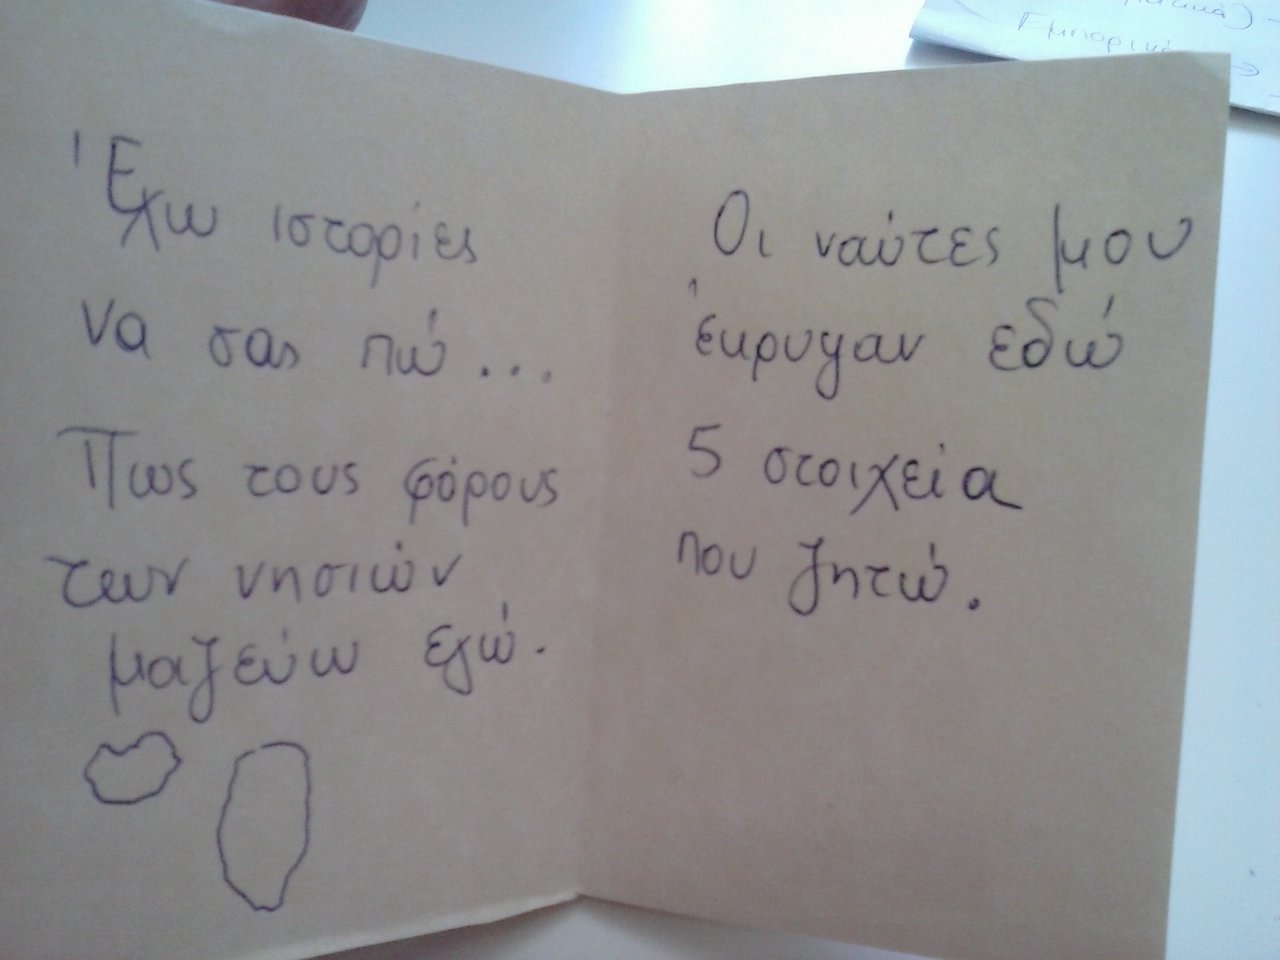 Έχω ιστορίες
να σας πώ...
Πως τους φόρους
των νησιών
μαζεύω εγώ.
Οι ναύτες μου
έκρυψαν εδώ
5 στοιχεία
που ζητώ.
Εμπορικ